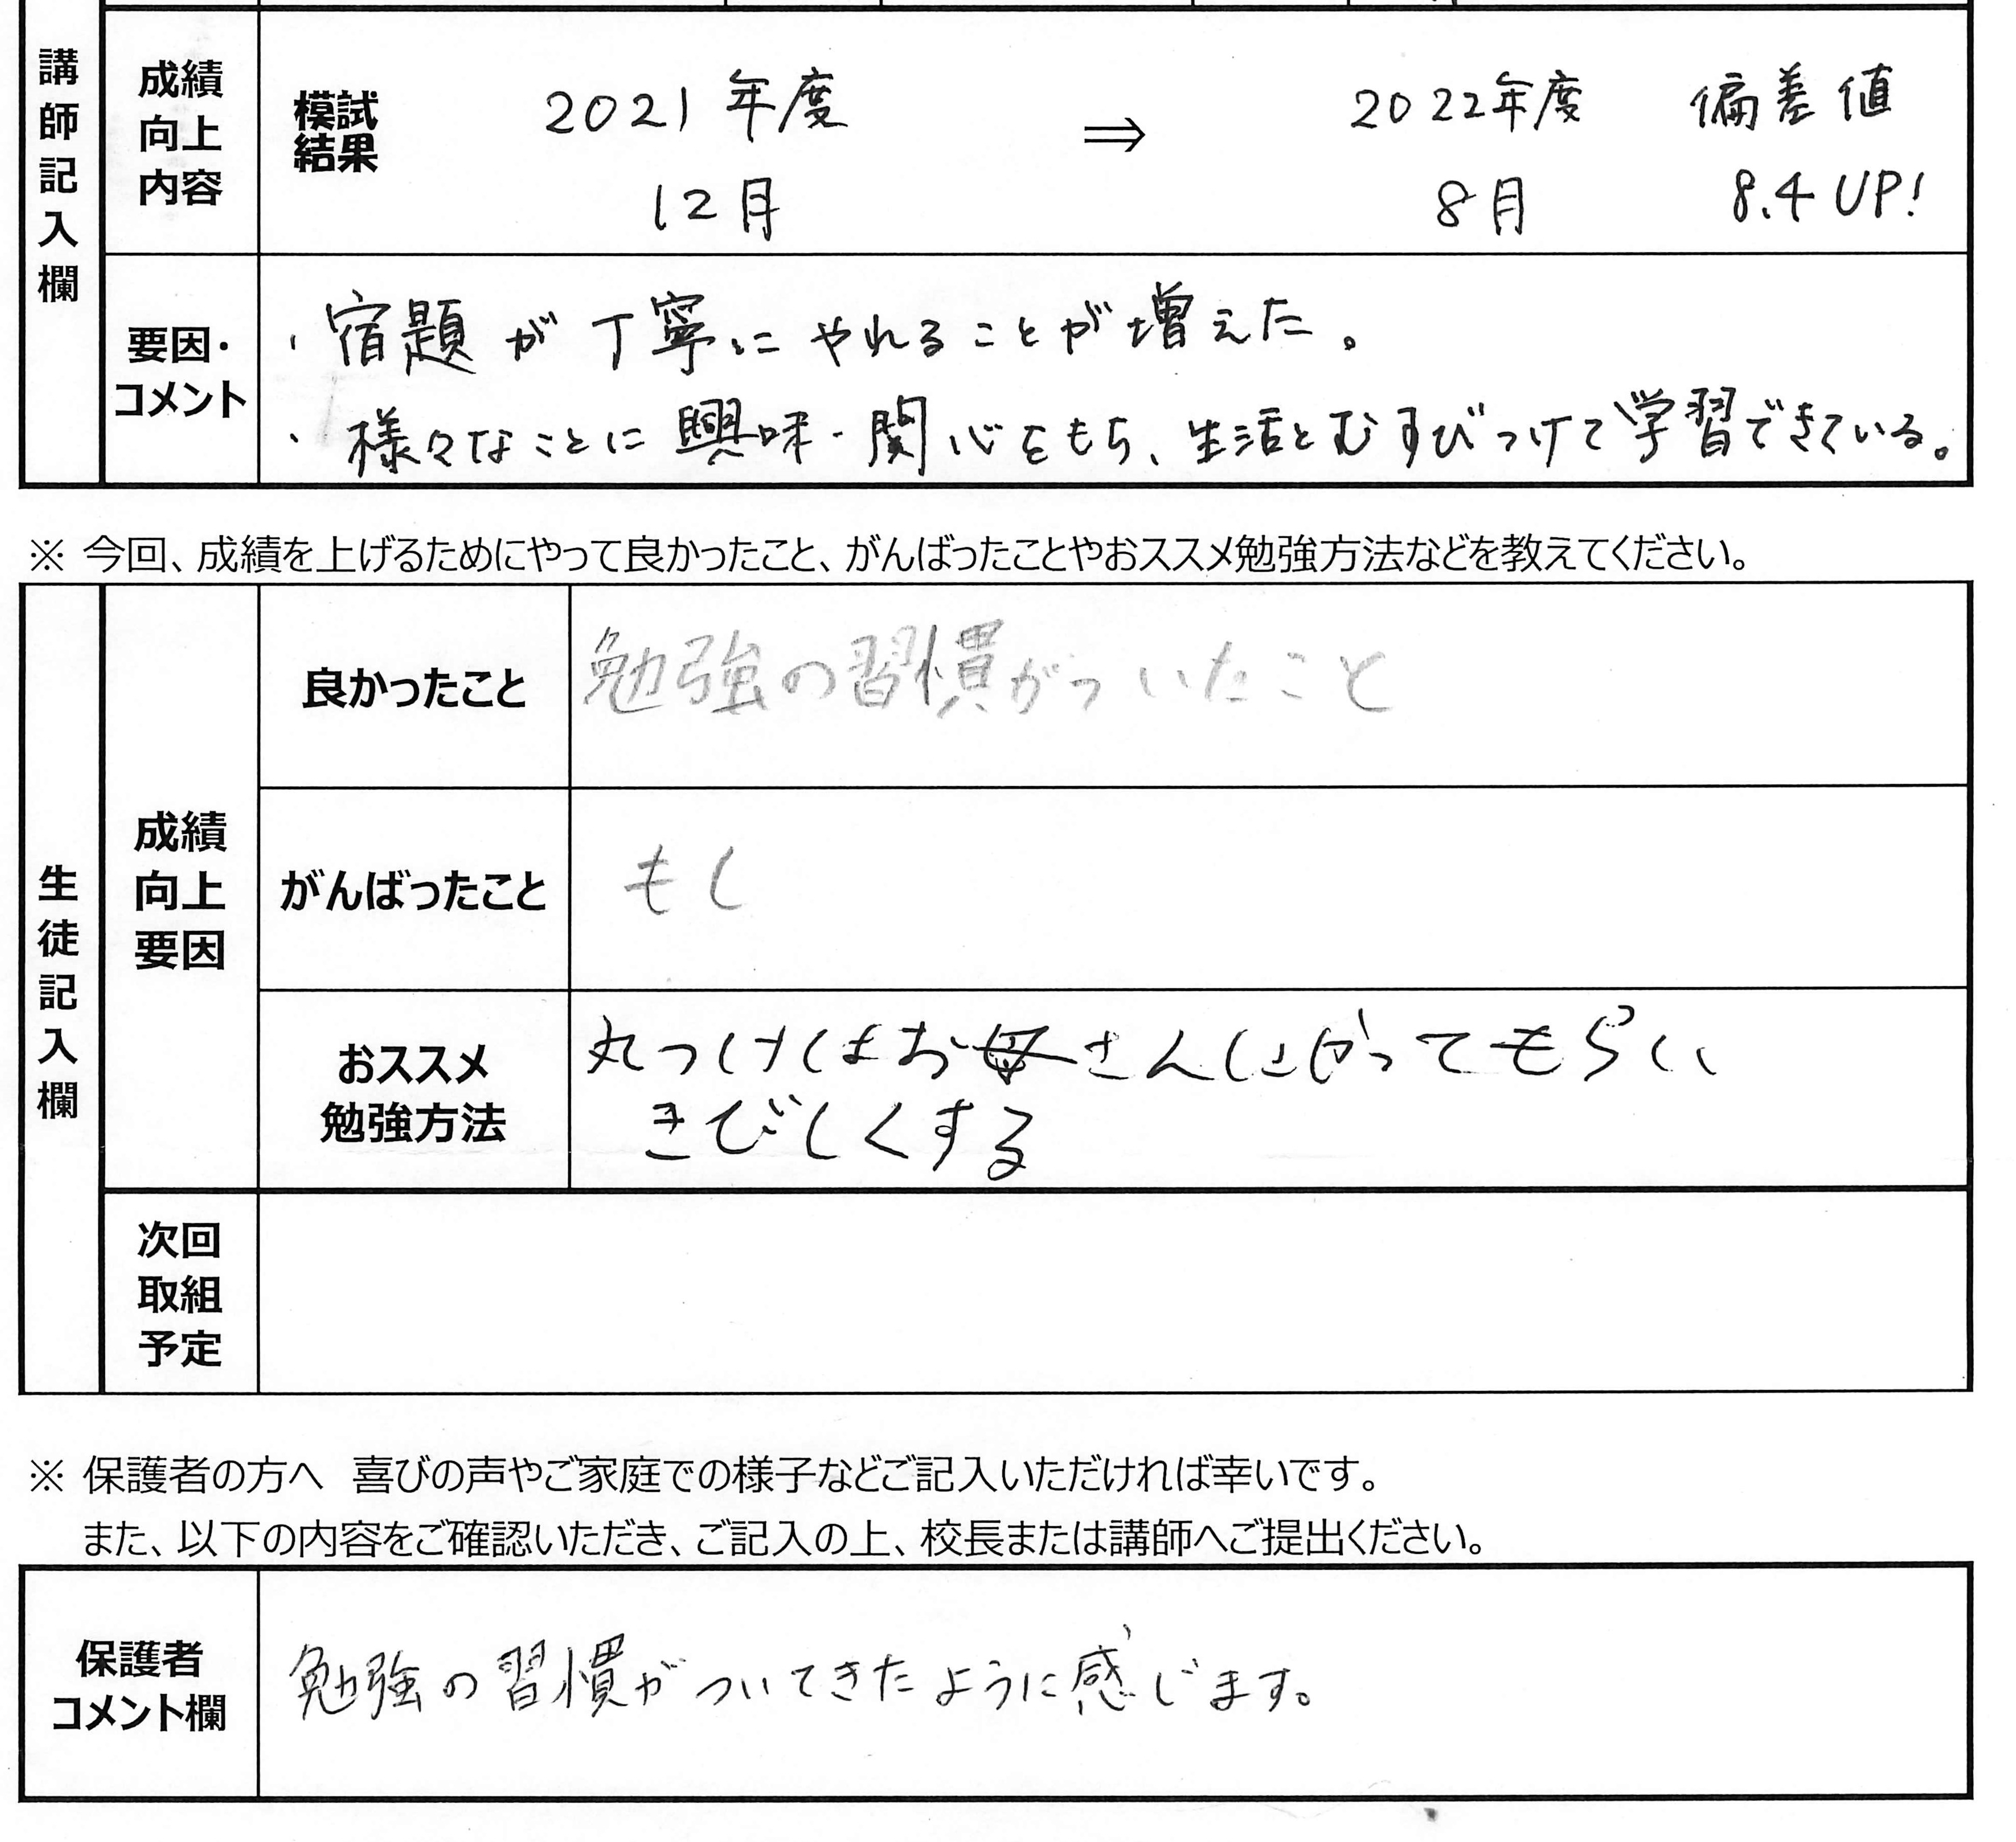 講師記入欄
成績向上内容
模試結果
2021年度 12月
⇒
2022年度 8月
偏差値 8.4UP!
要因・コメント
・宿題が丁寧にやれることが増えた。
・様々なことに興味・関心をもち、生活とむすびつけて学習できている。
※ 今回、成績を上げるためにやって良かったこと、がんばったことやおススメ勉強方法などを教えてください。
生徒記入欄
成績向上要因
良かったこと
勉強の習慣がついたこと
がんばったこと
もし
おススメ勉強方法
丸つけはお母さんにやってもらい
きびしくする
次回取組予定
※ 保護者の方へ 喜びの声やご家庭での様子などご記入いただければ幸いです。
また、以下の内容をご確認いただき、ご記入の上、校長または講師へご提出ください。
保護者コメント欄
勉強の習慣がついてきたように感じます。